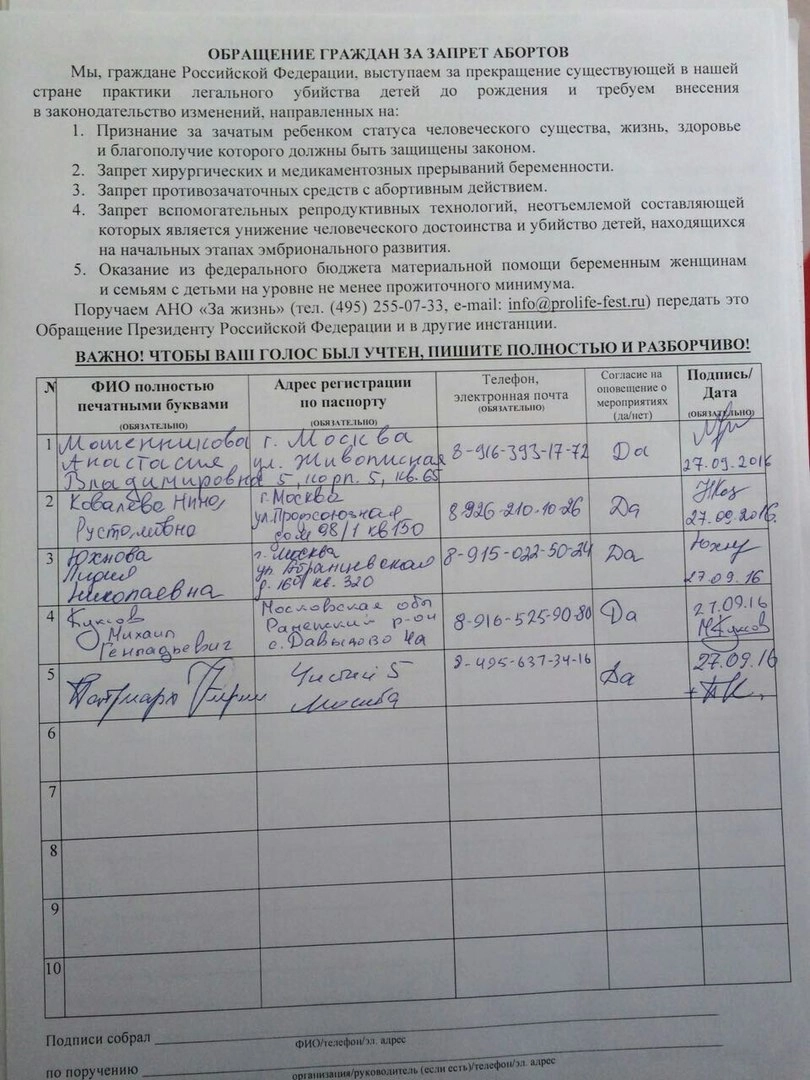 ОБРАЩЕНИЕ ГРАЖДАН ЗА ЗАПРЕТ АБОРТОВ
Мы, граждане Российской Федерации, выступаем за прекращение существующей в нашей
стране практики легального убийства детей до рождения и требуем внесения
в законодательство изменений, направленных на:
1. Признание за зачатым ребенком статуса человеческого существа, жизнь, здоровье
и благополучие которого должны быть защищены законом.
2. Запрет хирургических и медикаментозных прерываний беременности.
3. Запрет противозачаточных средств с абортивным действием.
4. Запрет вспомогательных репродуктивных технологий, неотъемлемой составляющей
которых является унижение человеческого достоинства и убийство детей, находящихся
на начальных этапах эмбрионального развития.
5. Оказание из федерального бюджета материальной помощи беременным женщинам
и семьям с детьми на уровне не менее прожиточного минимума.
Поручаем АНО «За жизнь» (тел. (495) 255-07-33, e-mail: info@prolife-fest.ru) передать это
Обращение Президенту Российской Федерации и в другие инстанции.
ВАЖНО! ЧТОБЫ ВАШ ГОЛОС БЫЛ УЧТЕН, ПИШИТЕ ПОЛНОСТЬЮ И РАЗБОРЧИВО!
N
ФИО полностью
печатными буквами
(ОБЯЗАТЕЛЬНО)
Адрес регистрации
по паспорту
(ОБЯЗАТЕЛЬНО)
Телефон,
электронная почта
(ОБЯЗАТЕЛЬНО)
Согласие на
оповещение о
мероприятиях
(да/нет)
Подпись/
Дата
(ОБЯЗАТЕЛЬНО)
1
Мошенникова
Анастасия
Владимировна
г. Москва
ул. Живописная
5, корп. 5, кв. 65
8-916-393-17-72
Да
27.09.2016
2
Ковалева Нина
Рустамовна
г. Москва
ул. Профсоюзная
дом 98/1 кв 150
8-926-210-10-26
Да
27.09.2016
3
Юхнова
Лидия
Николаевна
г. Москва
ул. Абрамцевская
кв. 320
8-915-022-50-24
Да
27.09.16
4
Михаил
Геннадьевич
Московская обл
Раменский р-он
с. Давыдово 4а
8-916-525-90-80
Да
27.09.16
5
Патриарх Кирилл
Чистый 5
Москва
8-495-637-34-16
Да
27.09.16
+ПК
6
7
8
9
10
Подписи собрал
ФИО/телефон/эл. адрес
по поручению
организация/руководитель (если есть)/телефон/эл. адрес